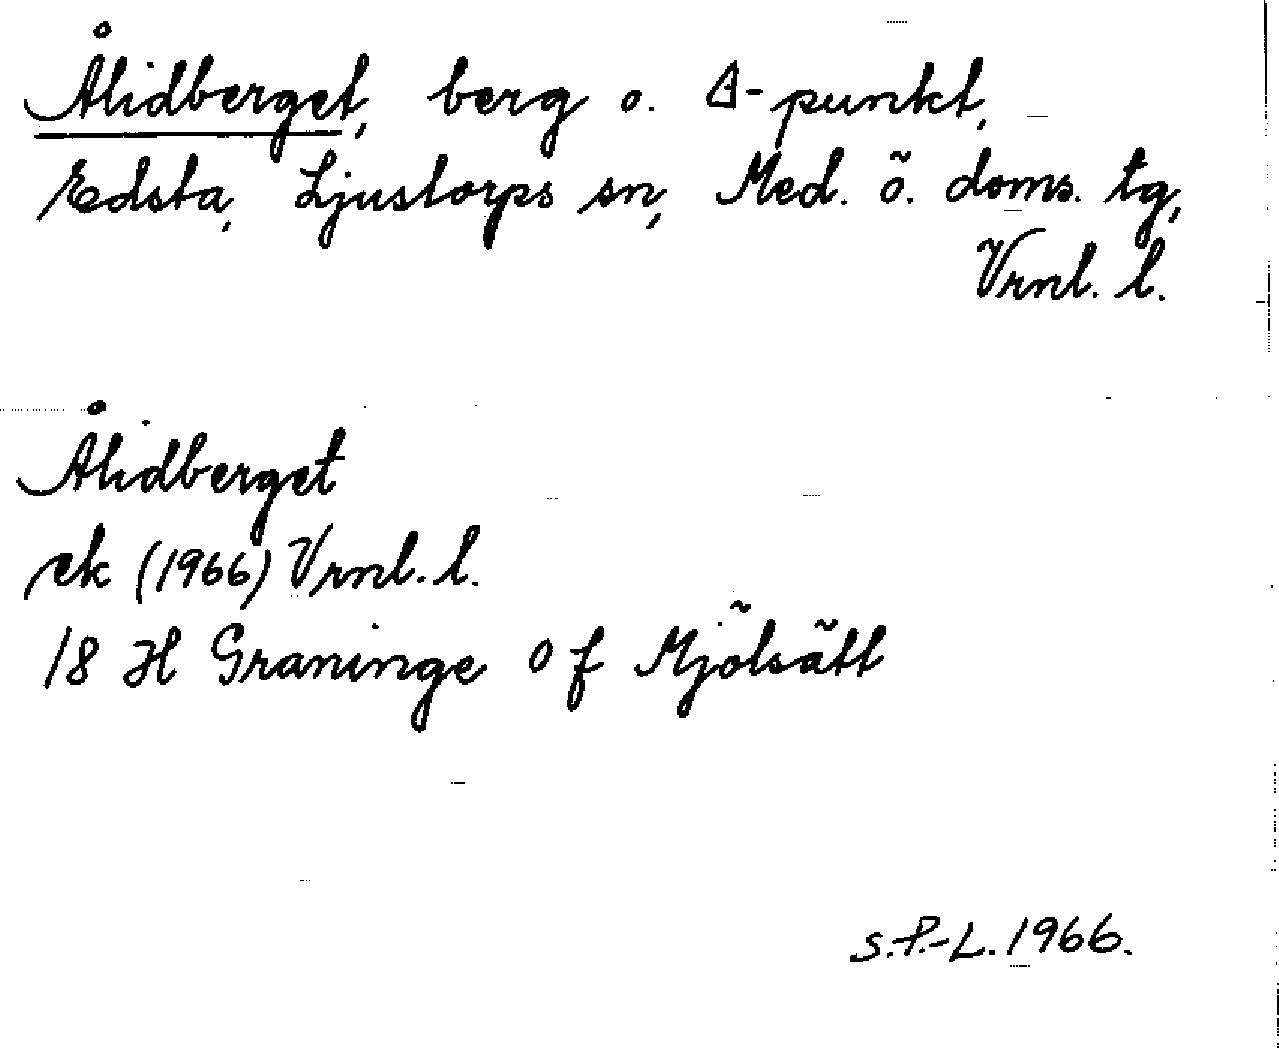 Ålidberget, berg o. Δ-punkt,
Edsta, Ljustorps sn, Med. ö. doms. tg,
Vrnl. l.
Ålidberget
ek (1966) Vrnl. l.
18 H Graninge 0 f Mjölsätt
S.P.-L. 1966.